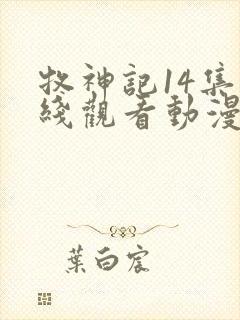 牧神記14集
綫觀看動漫
葉白宸